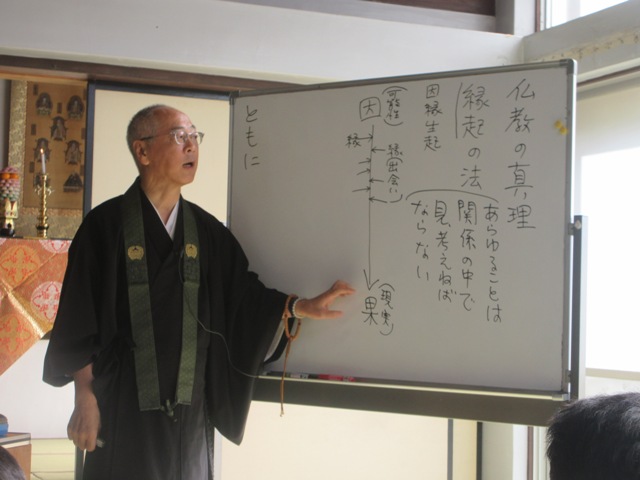 仏教の真理
縁起の法
あらゆることは
関係の中で
見、考えねば
ならない
因縁生起
因(可能性)
縁(出会い)
縁
果(現実)
ともに